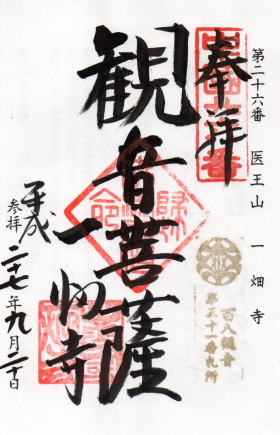 第二十六番　医王山　一畑寺
奉拝
百八観音
第三十一番札所
観音菩薩
一畑寺
平成
参拝
二十七年九月二十日